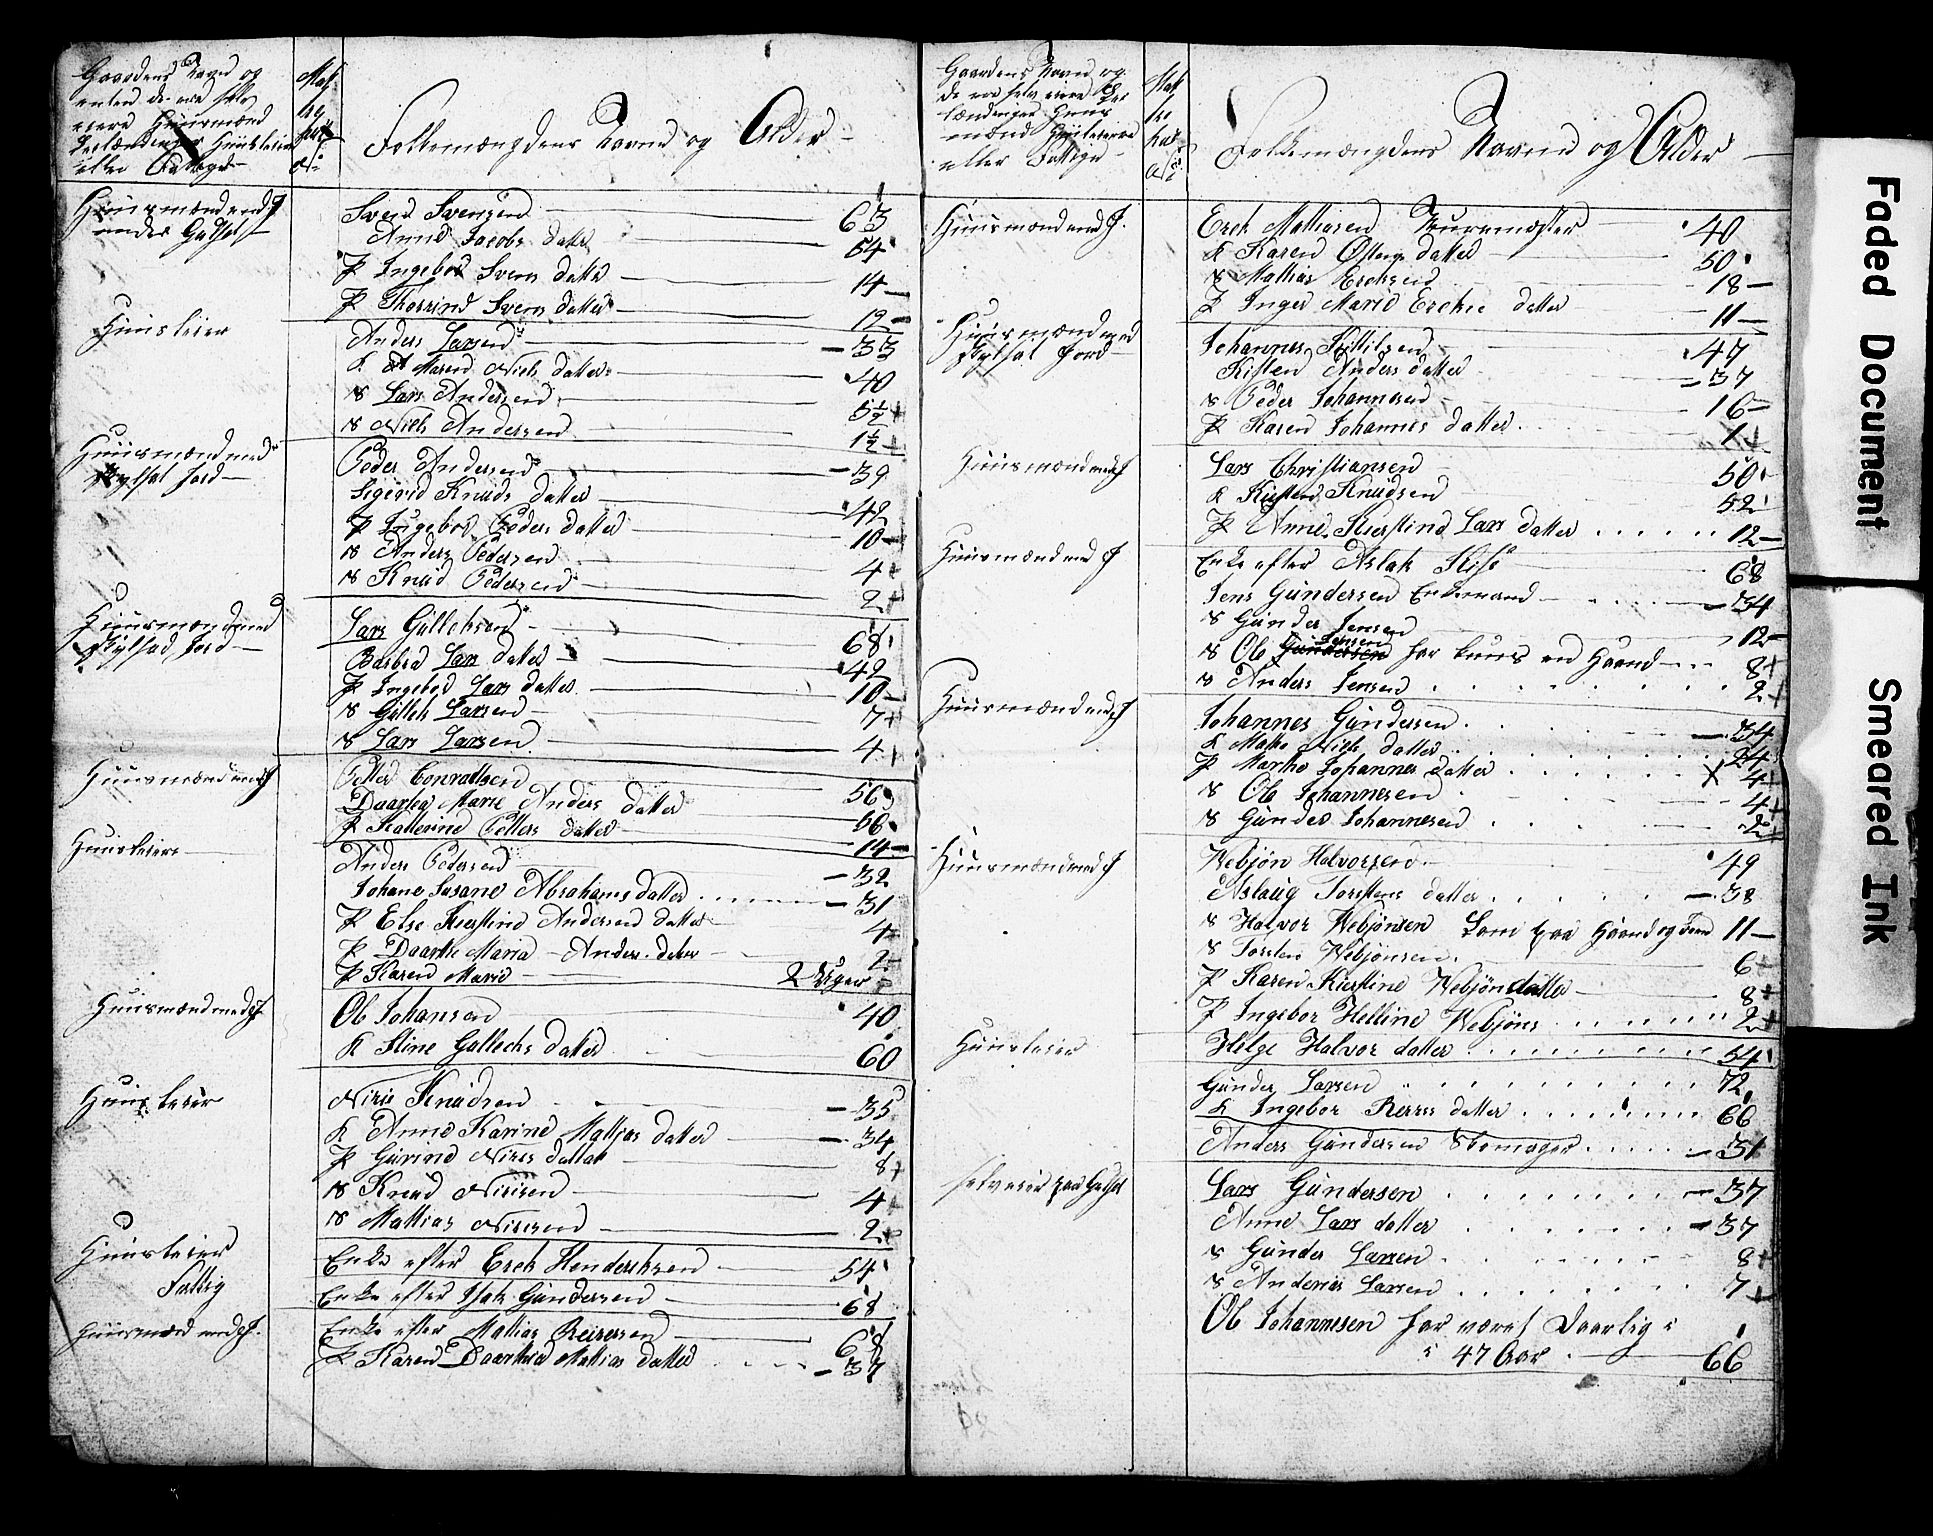 Gaardens Navn og
enten de ere selv
eiere Huusmænd
Inderster Huusleier
eller Fattige
Mat
No
Folkemængdens Navne og Alder
Huusmænd med J
under Gulset
Svend Svensen 63
Anne Jacobs datter 54
P Ingebor Svens datter 14
P Thorine Svens datter 12
Huusleier
Anders Larsen 33
K Maren Niels datter 40
S Lars Andersen 5½
S Niels Andersen 1½
Huusmænd med
Rylsat Jord
Peder Andersen 39
Sigirid Knuds datter 42
P Ingebor Peders datter 10
S Anders Pedersen 4
S Knud Pedersen 2
Huusmænd med
Rylsad Jord
Lars Gullechsen 68
Barbra Lars datter 42
P Ingebor Lars datter 10
S Gullech Larsen 7
S Lars Larsen 4
Huusmænd med J
Petter Conradtsen 56
Daartea Marie Anders datter 56
P Kattrine Petters datter 14
Huusleiere
Anders Pedersen 32
Johane Susane Abrahams datter 31
P Else Kierstine Andersen datter 4
P Daarthe Maria Anders datter 2
P Karen Marie 2 Uger
Huusmænd med J
Ole Johansen 40
K Stine Gullechs datter 60
Huusleier
Niric Knudsen 35
K Anne Karine Mattias datter 34
P Gurine Nires datter 8
S Knud Nirisen 4
S Mattias Nirisen 2
Huusleier
Enke efter Erek Henderiksen 54
Fattig
Enke efter Isak Gundersen 68
Huusmænd med J.
Enke efter Mattias Reiersen 68
P Karen Daarthea Mattias datter 37
Gaardens Navn og
de ere selv eiere
lændinger Huus
mænd Huusleiere
eller Fattige
Mat
No
Folkemængdens Navne og Alder
Huusmænd med J.
Erek Mathiasen Muurmæster 40
K Karen Østergs datter 50
S Mathias Ereksen 18
P Inger Marie Ereks datter 11
Huusmænd med
Rylsat Jord
Johannes Kittilsen 47
Kisten Anders datter 37
S Peder Johannesen 16
P Karen Johannes datter 1
Huusmænd med J
Lars Christiansen 50
K Kiesten Knudsen 52
P Anne Kierstine Lars datter 12
Huusmænd med J
Enke efter Aslak Kise 68
Jens Gundersen Enkemand 34
S Gunder Jensen 12
S Ole Gundersen Jensen har kuns en Haand 8
S Anders Jensen 2
Huusmænd med J
Johannes Gundersen 34
K Mathe Niels datter 24
P Marthe Johannes datter X 4
S Ole Johannesen 4
S Gunder Johannesen 2
Huusmænd med J
Webjøn Halvorsen 49
Aslaug Torstens datter 38
S Halvor Webjønsen Lam paa Haand og Been 11
S Torsten Webjønsen 6
P Karen Kierstine Webjøndatter 8
P Ingebor Helline Webjøns 2
Huusleier
Helge Halvor datter 54
Gunder Larsen 72
K Ingebor Reiers datter 66
Anders Gundersen Skomager 31
selveier paa Gulset
Lars Gundersen 37
Anne Lars datter 37
S Gunder Larsen 8
S Anderias Larsen 7
Ole Johannesen har været Daarlig i
i 47 Aar 66
Faded Document
Smeared Ink